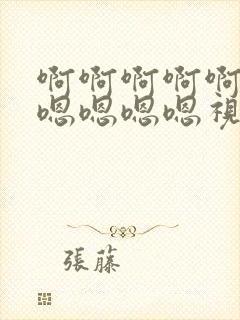 啊啊啊啊啊
嗯嗯嗯嗯視
張藤